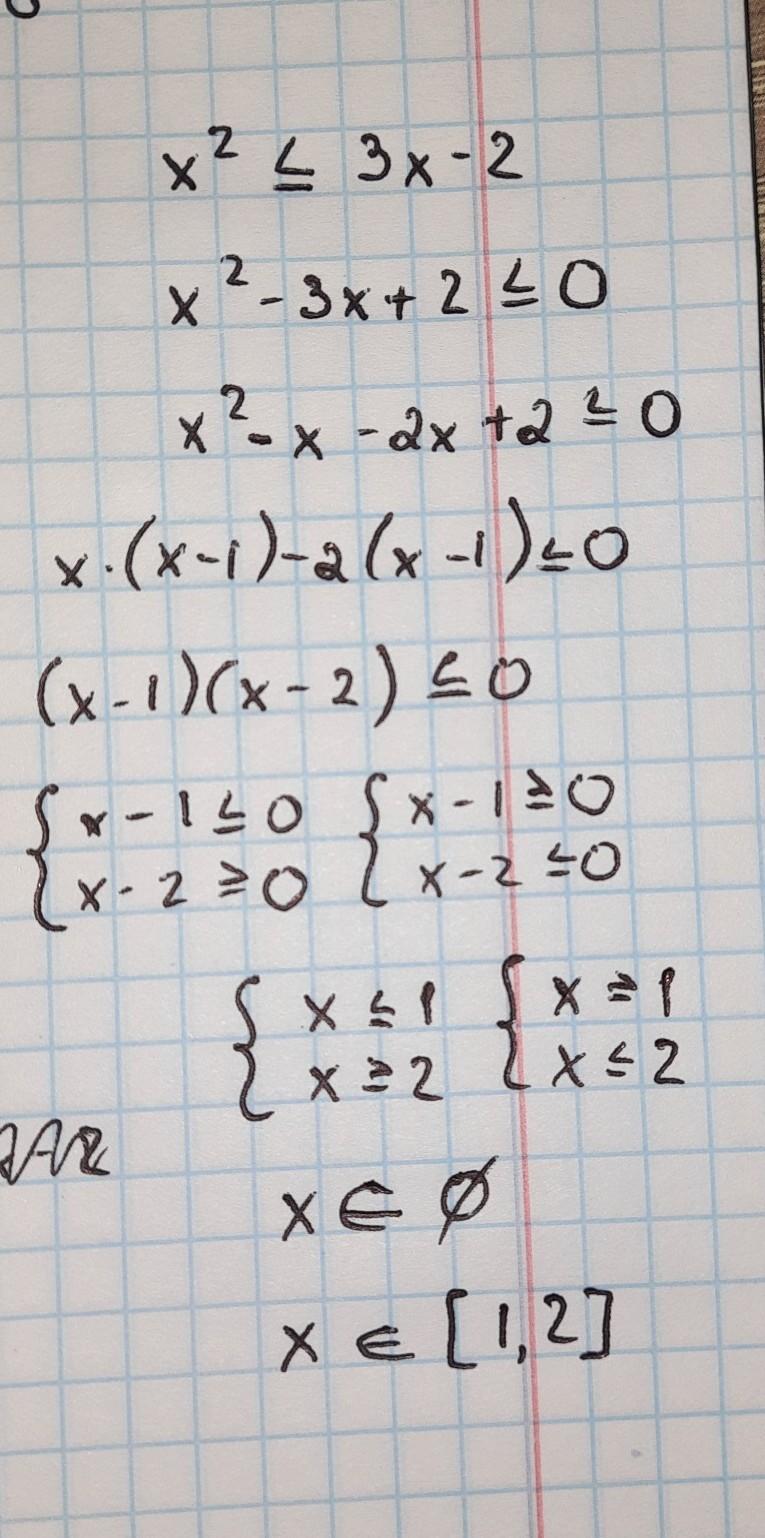 x² ≤ 3x-2
x²-3x+2 ≤ 0
x²-x-2x+2 ≤ 0
x·(x-1)-2(x-1)≤0
(x-1)(x-2) ≤ 0
{ x-1 ≤ 0 { x-1 ≥ 0
x-2 ≥ 0 x-2 ≤ 0
{ x ≤ 1 { x ≥ 1
x ≥ 2 x ≤ 2
x ∈ ∅
x ∈ [1,2]